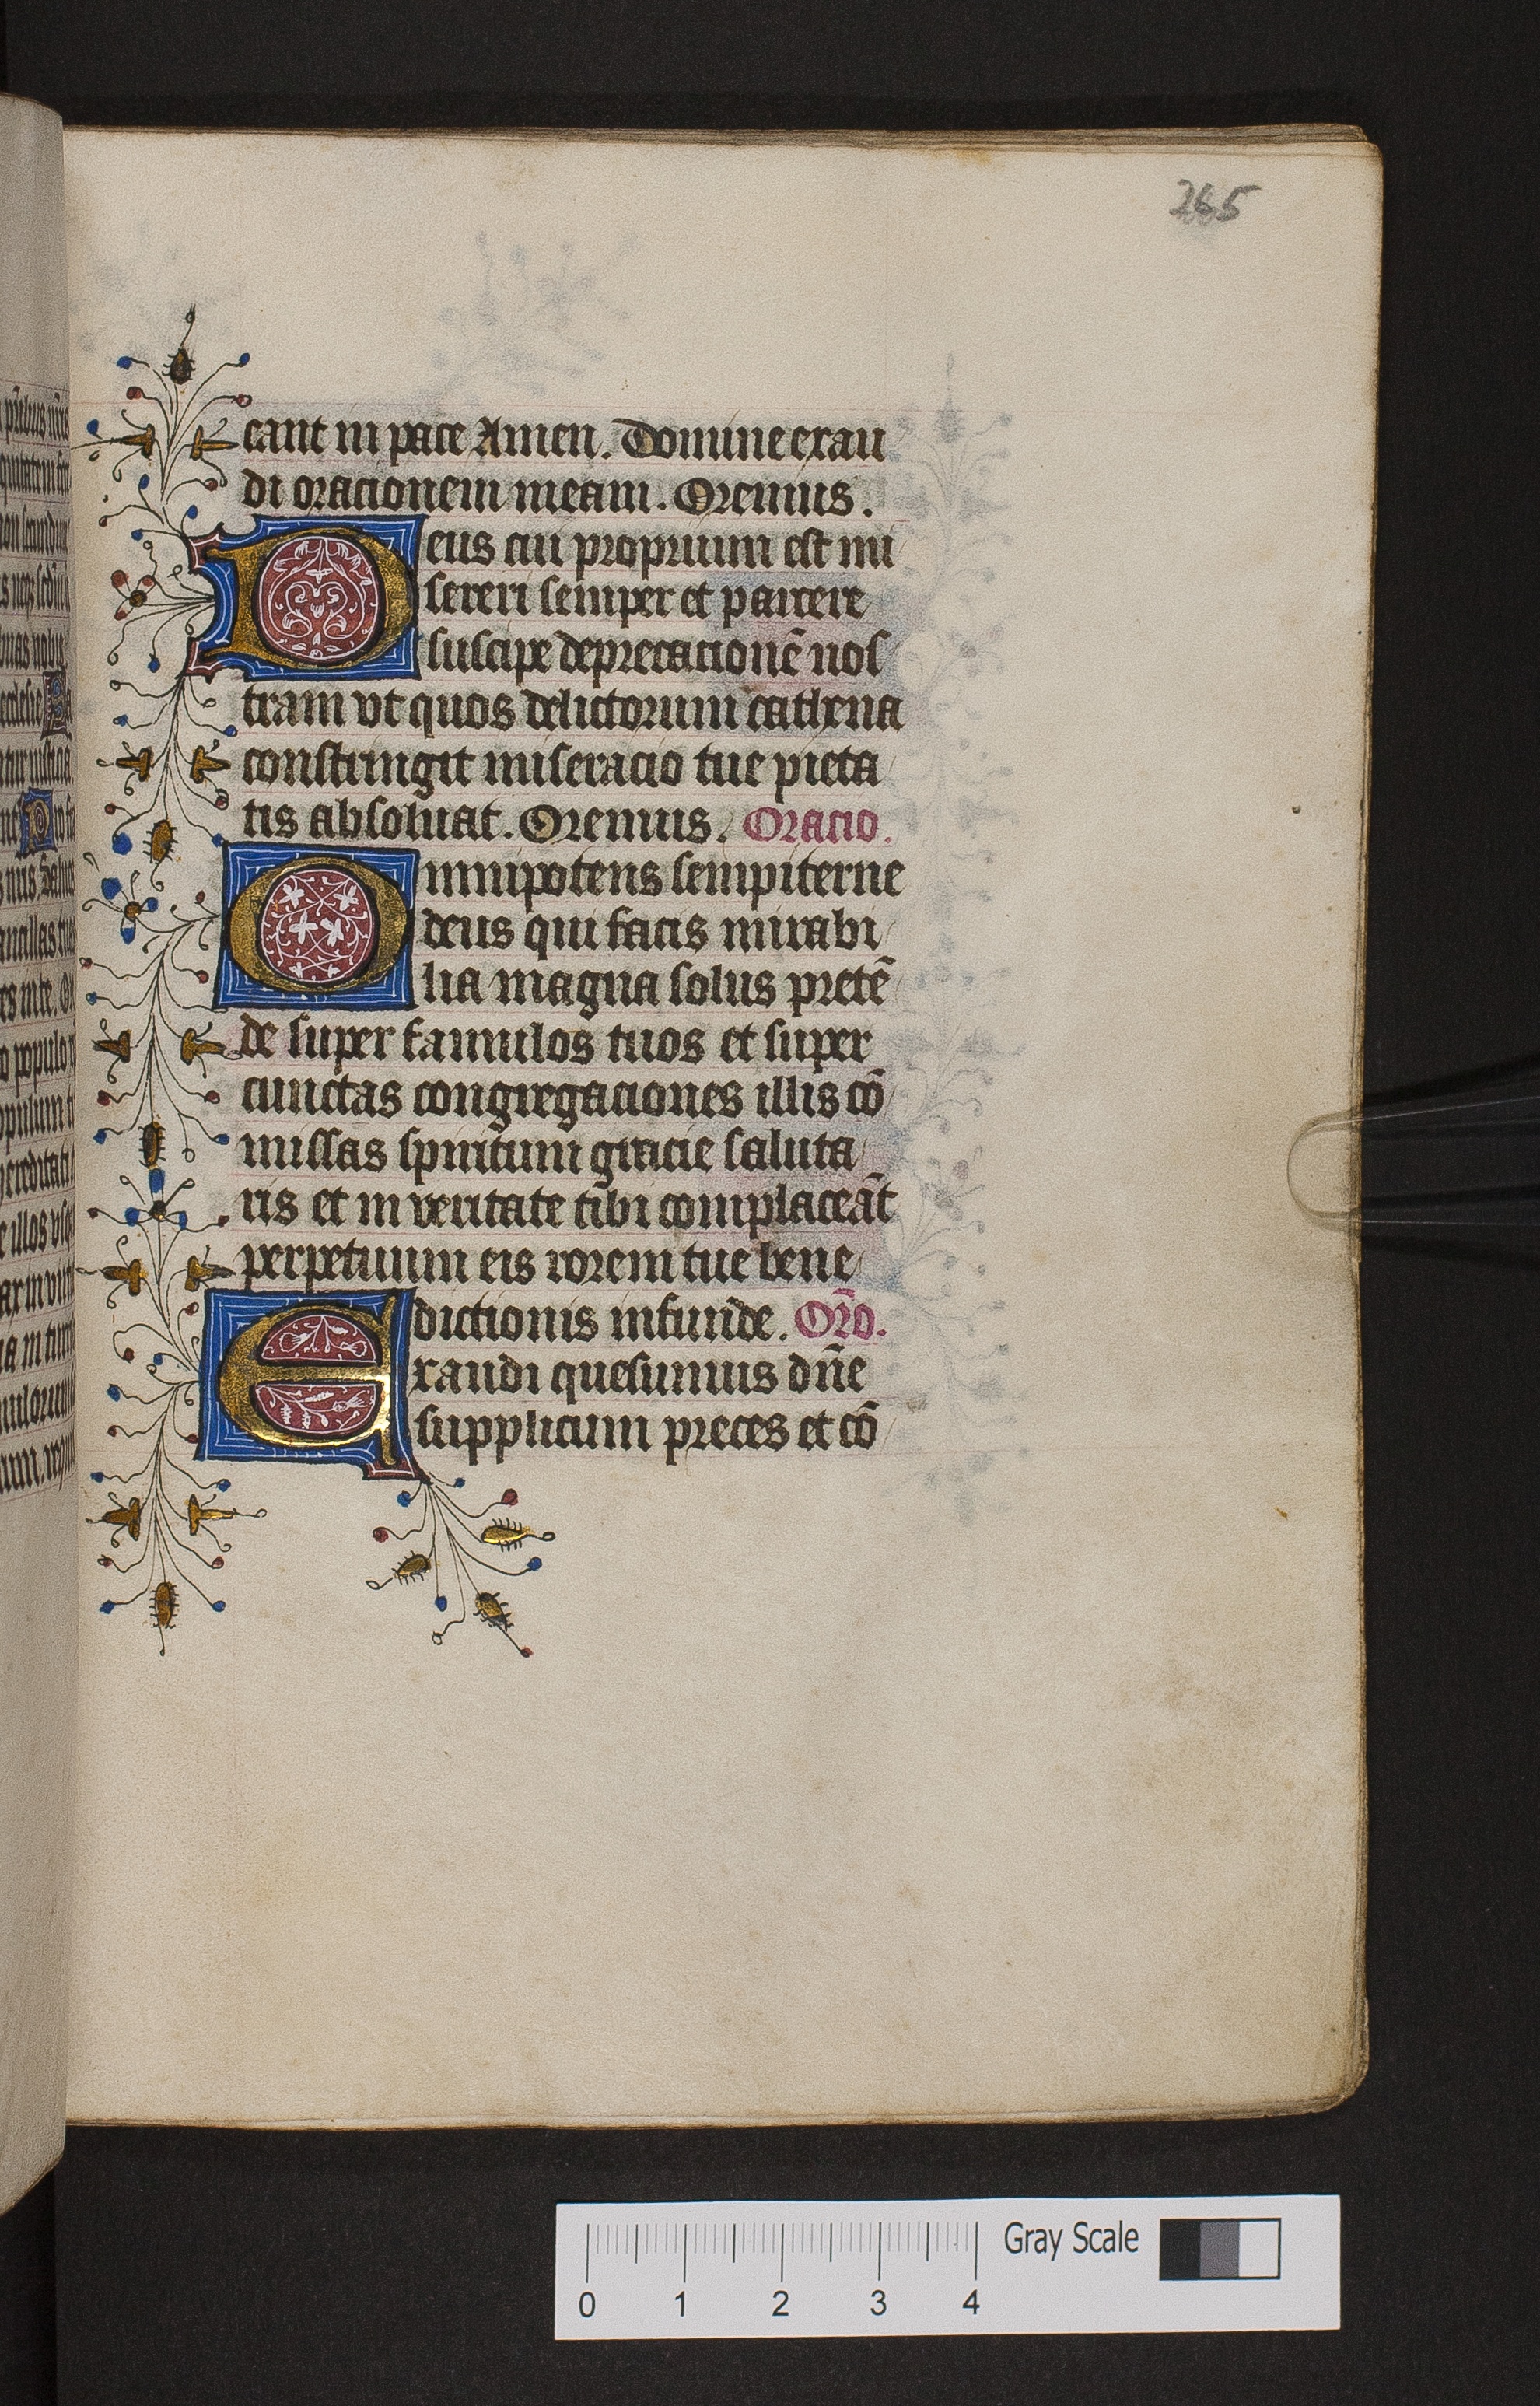 265
cant in pace Amen. Domine exau
di oracionem meam. Oremus.
Deus cui proprium est mi
sereri semper et parcere
suscipe deprecacionē nos
tram vt quos delictorum cathena
constringit miseracio tue pieta
tis absoluat. Oremus. Oracio.
Omnipotens sempiterne
deus qui facis mirabi
lia magna solus pretē
de super famulos tuos et super
cunctas congregaciones illis cō
missas spiritum gracie saluta
ris et in veritate tibi complaceāt
perpetuum eis rorem tue bene
dictionis infunde. Or̄o.
Exaudi quesumus dn̄e
supplicum preces et cō
0 1 2 3 4 Gray Scale